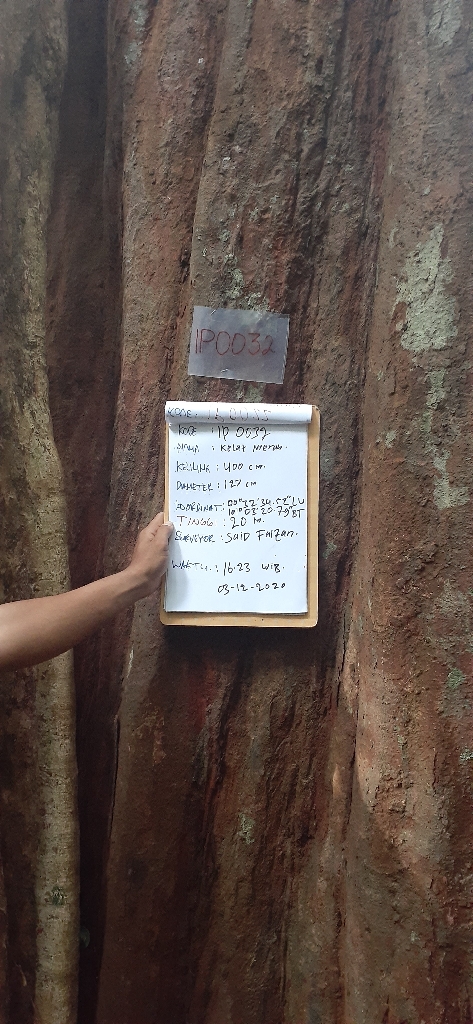 IP0032
KODE :
KODE : IP 0032
NAMA : Kelat Merah.
KELILING : 400 cm.
DIAMETER : 127 cm
KOORDINAT : 00°22'34.52" LU
103'20.79" BT
TINGGI : 20 M.
SURVEYOR : SAID FAIZAN.
WAKTU : 16.23 WIB.
03-12-2020